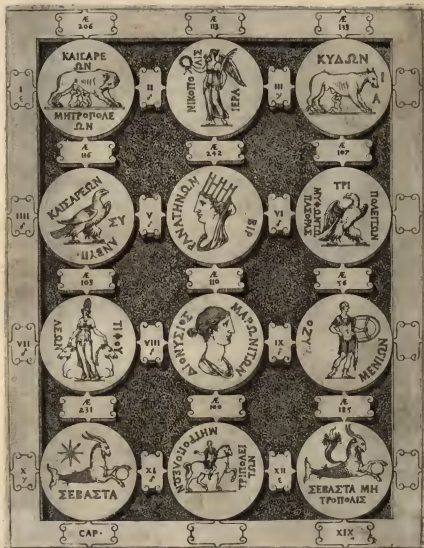 Æ
206
Æ
113
Æ
133
I
ΚΑΙΣΑΡΕ
ΩΝ
ΜΗΤΡΟΠΟΛΕ
ΩΝ
II
ΝΙΚΟΠΟ
ΙΕΡΑ
III
ΚΥΔΩΝ
Æ
116
Æ
242
Æ
107
IIII
ΚΑΙΣΑΡΕΩΝ
ΣΥ
ΑΝΒΥΠ·
V
ΡΑΝΑΤΗΝΩΝ
ΒΙΡ
VI
ΤΡΙ
ΠΟΛΕΙΤΩΝ
Æ
103
Æ
110
Æ
56
VII
ΛΕΩΝ
VIII
ΔΙΟΝΥΣΙΟΣ
ΜΑΡΩΝΙΤΩΝ
IX
ΟΖΥ
ΜΕΝΙΩΝ
Æ
231
Æ
100
Æ
185
X
ΣΕΒΑΣΤΑ
XI
ΜΗΤΡΟΠΟΛΕΩΝ
ΤΡΙΠΟΛΕΙ
ΤΩΝ
XII
ΣΕΒΑΣΤΑ ΜΗ
ΤΡΟΠΟΛΙΣ
CAP·
XIX